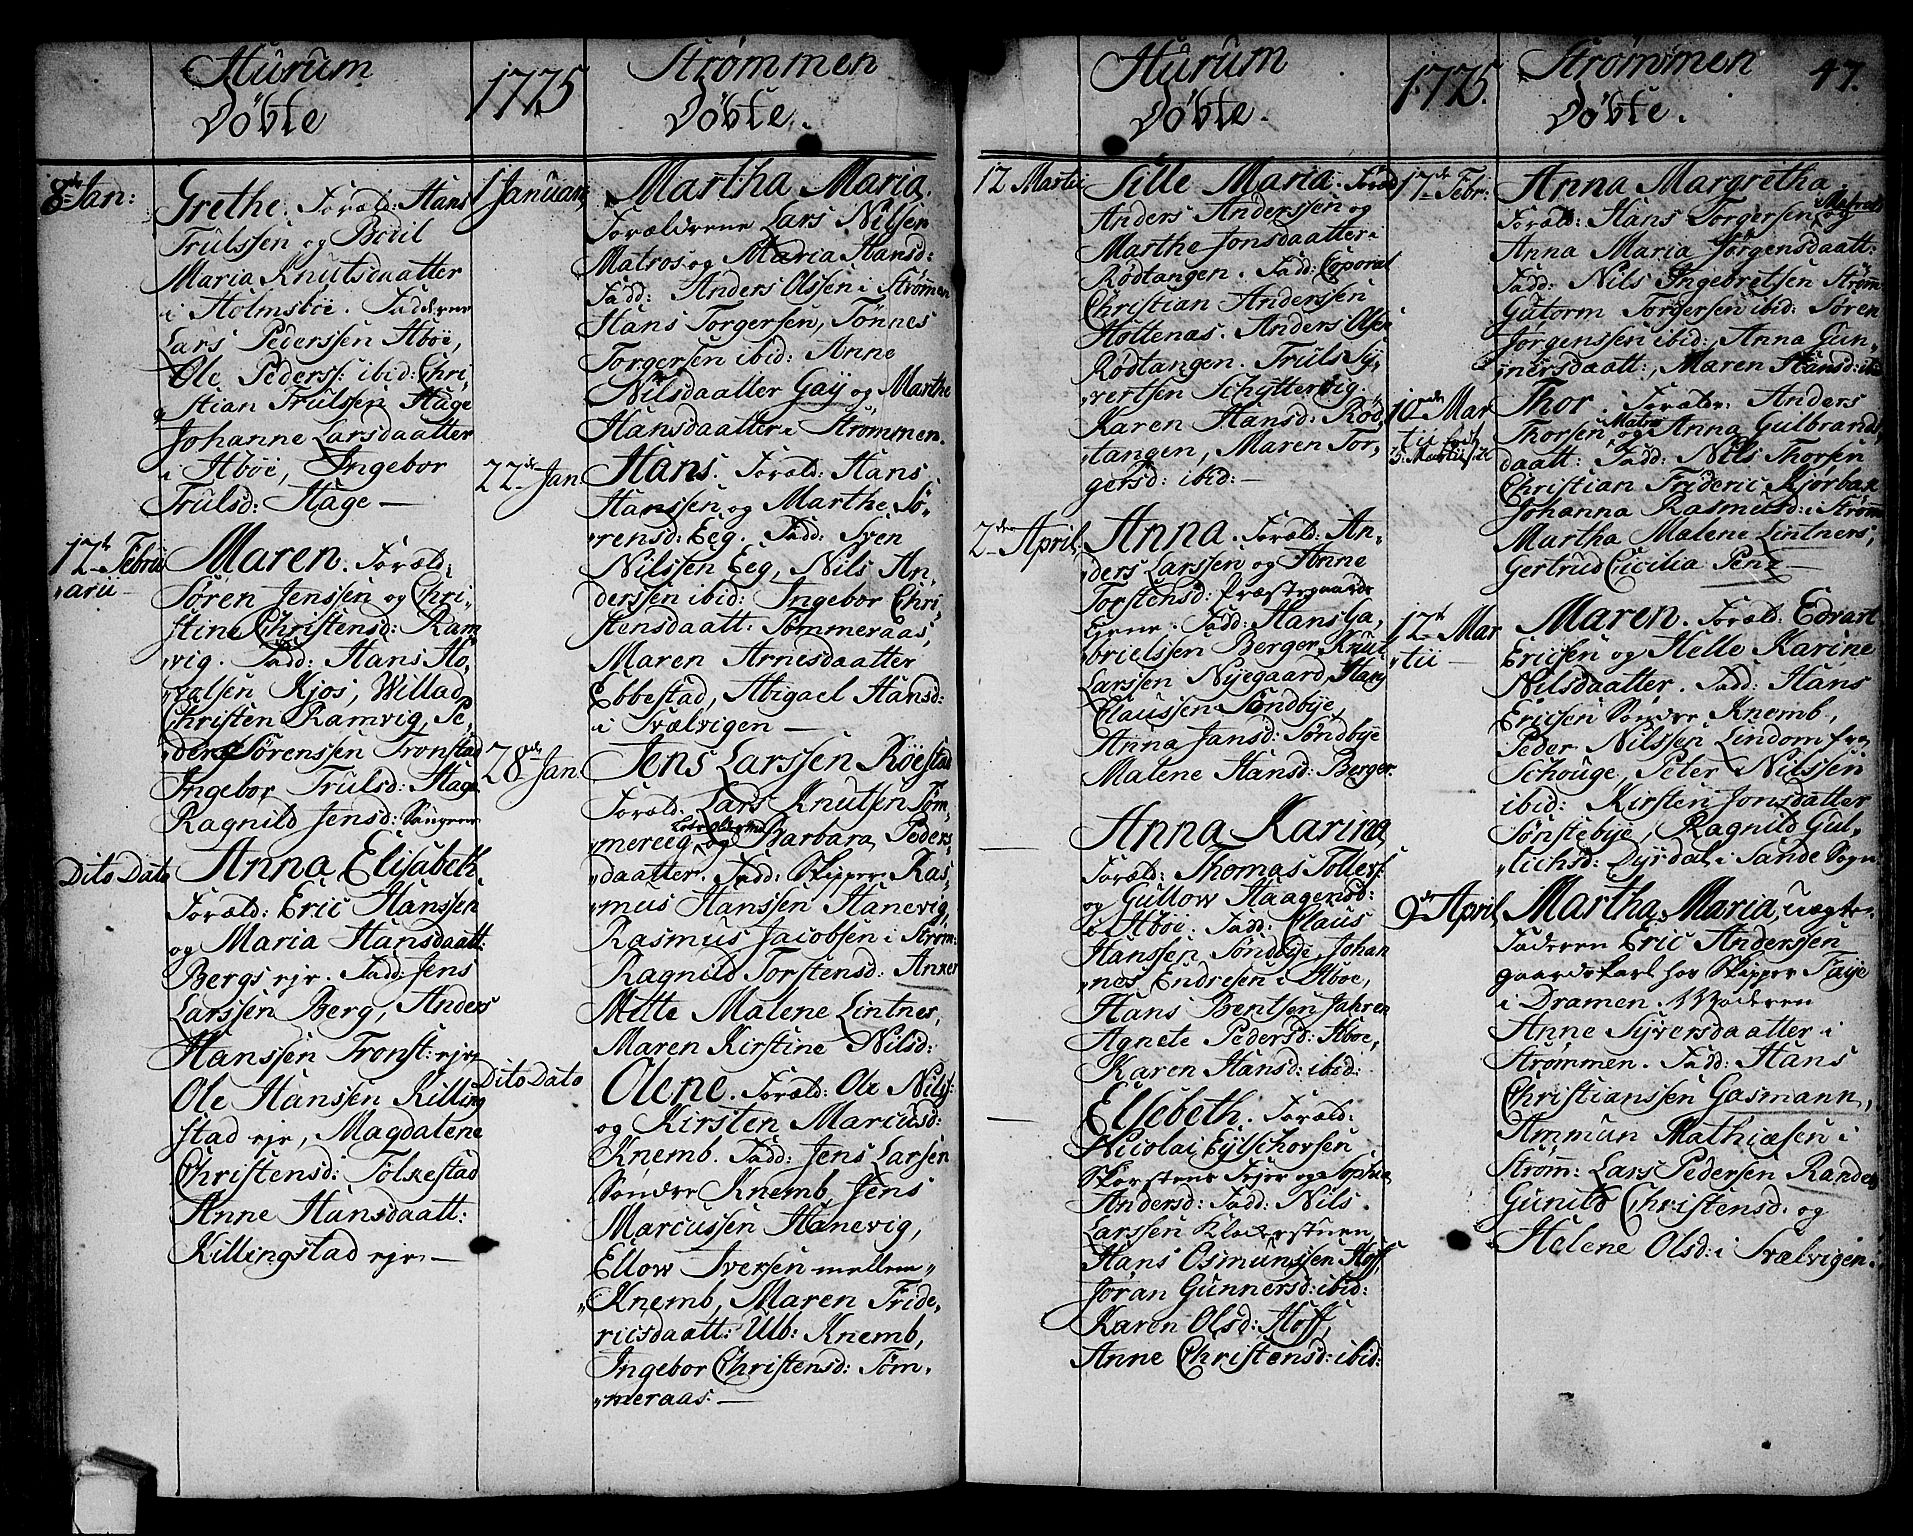 Hurum
Døbte
8de Jan:
Grethe. Foræld: Hans
Trulssen og Bodil
Maria Knutsdaatter
i Holmsböe. Fadderne
Lars Pederssen Aböe,
Ole Peders: ibid: Chri-
stian Trulssen Hage
Johanne Larsdaatter
i Aböe, Ingebor
Trulsd: Hage —
12te Febru
arii —
Maren. Foræld:
Sören Jenssen og Chri-
stine Christensd: Ram
vig. Fadd: Hans Ho,
valsen Kjos, Willad
Christen Ramvig, Pe,
der Sörenssen Tronstad
Ingebor Trulsd: Hage
Ragnild Jensd:
Dito Dato
Anna Elisabeth.
Foræld: Eric Hanssen
og Maria Hansdaatt:
Bergs ejr. Fadd: Jens
Larssen Berg, Anders
Hanssen Tronst: ejr
Ole Hanssen Killing
stad ejr, Magdalene
Christensd: Tolkestad
Anne Hansdaatt:
Killingstad ejr —
1775
Strømmen
Døbte.
1 Januarii
Martha Maria.
Forældrene Lars Nilsen
Matros og Maria Hansd:
Fadd: Anders Olssen i Strømen
Hans Torgersen, Tönnes
Torgersen ibid: Anne
Nilsdaatter Gaÿ og Marthe
Hansdaatter i Strømmen.
22de Jan
Hans. Foræld: Hans
Hanssen og Marthe Sö-
rensd: Eeg. Fadd: Sven
Nilssen Eeg, Nils An,
derssen ibid: Ingebor Chri-
stensdaatt: Tømmeraas,
Maren Arnesdaatter
Ebbestad, Abigael Hansd:
i Svælvigen —
28de Jan.
Jens Larssen Röestad
Foræld: Lars Knutsen Töm
mereeg og Barbara Peders
daatter. Fadd: Skipper Ras,
mus Hanssen Hanevig,
Rasmus Jacobsen i Strøm:
Ragnild Torstensd: Anker
Mette Malene Lintner,
Maren Kirstine Nilsd:
Dito Dato
Olene. Foræld: Ole Nils:
og Kirsten Marcusd:
Knemb. Fadd: Jens Larsen
Søndre Knemb, Jens
Marcussen Hanevig,
Ellow Iversen mellem
Knemb, Maren Fride,
ricsdaatt: Ulb: Knemb,
Ingebor Christensd: Tøm,
meraas: —
Hurum
Døbte.
12 Martii
Sille Maria. Foræld
Anders Anderssen og
Marthe Jonsdaatter i
Rödtangen. Fadd: Corporal
Christian Anderssen
Holtenas. Anders Olsen
Rödtangen. Truls Sy,
vertsen Schÿttervig.
Karen Hansd: Röd
tangen, Maren Tor,
gersd: ibid: —
2den April,
Anna. Foræld: An,
ders Larssen og Anne
Torstensd: Præstegaards
Ejerne. Fadd: Hans Ga,
brielssen Berger, Knut
Larssen Nÿegaard, Hans
Claussen Søndbÿe,
Anna Jansd: Søndbÿe
Malene Hansd: Berger
—
Anna Karina
Foræld: Thomas Tollers:
og Gullow Haagensd:
i Aböe. Fadd: Claus
Hanssen Söndbÿe, Johan
nes Endresen i Aboe,
Hans Bentsen Jahren
Agnete Pedersd: Aboe,
Karen Hansd: ibid:
—
Elsebeth. Foræld:
Nicolai Eÿlschorsen
Skorstens Fejer og Sophia
Andersd: Fadd: Nils
Larssen Kloderstuen
Hans Osmundssen Hoff
Jöran Gunnersd: ibid:
Karen Olsd: Hoff,
Anne Christensd: ibid:
1775.
Strømmen
Døbte.
47.
17de Febr:
Anna Margretha
Foræld: Hans Torgersen Matros og
Anna Maria Jörgensdaatt:
Fadd: Nils Ingebretsen Strøm
Gutorm Torgersen ibid: Sören
Jörgenssen ibid: Anna Gun,
nersdaatt: Maren Hansd: ibid
10de Mar
tii
Thor. Foræld: Anders
Thorsen Matros og Anna Gulbrands
daatt: Fadd: Nils Thorsen
Christian Frideric Kjörbax
Johanna Rasmusd: i Strømm
Martha Malene Lintners,
Gertrud Cicilia Pens —
12te Mar
tii —
Maren. Foræld: Edvart
Ericsen og Helle Karine
Nilsdaatter. Fadd: Hans
Ericsen Søndre Knemb,
Peder Nilssen Lindom fra
Schouge, Peter Nilssen
ibid: Kirsten Jonsdatter
Sønstebÿe, Ragnild Gul,
lichsd: Dÿrdal i Sande Sogn
9de April,
Martha Maria, uægte.
Faderen Eric Anderssen
gaardskarl hos Skipper Faÿe
i Dramen. Moderen
Anne Sÿversdaatter i
Strømmen. Fadd: Hans
Christianssen Gasmann,
Ammun Mathiæsen i
Strøm: Lars Pedersen Rande
Gunild Christensd: og
Helene Olsd: i Svælvigen.